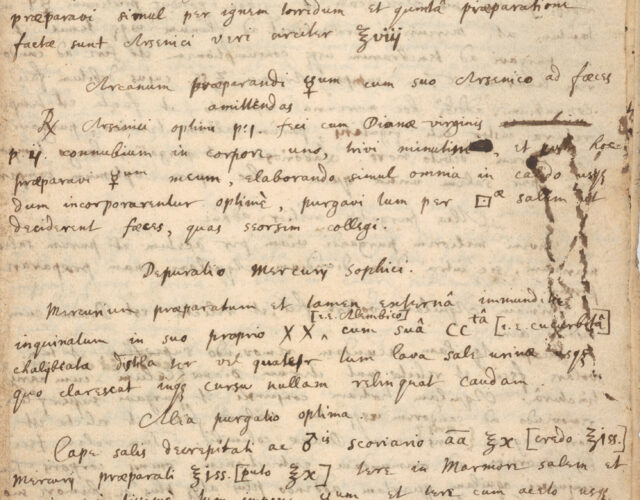 præparavi simul per ignem torridum et quintâ præparatione
factæ sunt Arsenici veri circiter ℥viij
Arcanum præparandi ☿um cum suo Arsenico ad fæces
amittendas
℞ Arsenici optimi p: j. feci cum Dianæ virginis
p ij. connubium in corpore uno, trivi minutim, et hoc
præparavi ☿um meum, elaborando simul omnia in
dum incorporarentur optimè, purgavi tum per salem ut
deciderent fæces, quas seorsim collegi.
Depuratio Mercurij Sophici.
Mercurium præparatum et tamen externâ immunditie
[i.e. Alembico]
inquinatum in suo proprio XX, cum suâ CCtâ [i.e. cucurbitâ]
chalibeata distilla ter vel quater tum lava sale urinæ usqꝫ
quo clarescat inqꝫ cursu nullam relinquat caudam.
Alia purgatio optima.
Cape salis decrepitati ac ♂is scoriario aa ℥x [credo ℥jss.]
Mercurij præparati ℥jss. [puto ℥x] tere in Marmore salem et
☿um et tere cum aceto usqꝫ